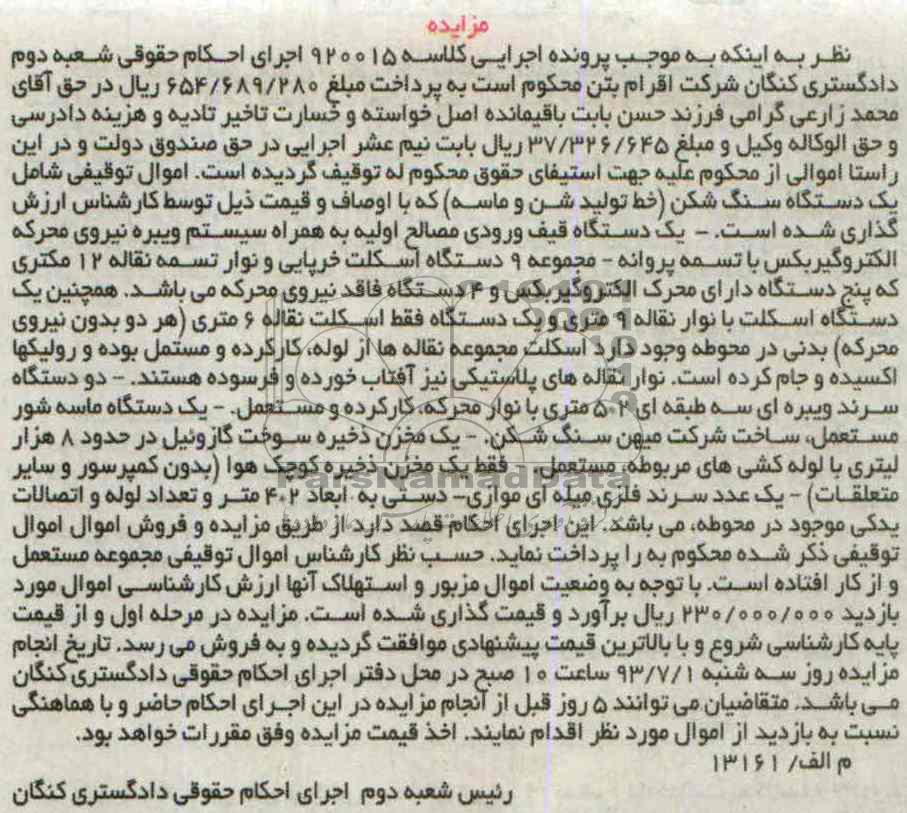 مزایده
نظر به اینکه به موجب پرونده اجرایی کلاسه ۹۲۰۰۱۵ اجرای احکام حقوقی شعبه دوم
دادگستری کنگان شرکت اقرام بتن محکوم است به پرداخت مبلغ ۶۵۴/۶۸۹/۲۸۰ ریال در حق آقای
محمد زارعی گرامی فرزند حسن بابت باقیمانده اصل خواسته و خسارت تاخیر تادیه و هزینه دادرسی
و حق الوکاله وکیل و مبلغ ۳۷/۳۲۶/۶۴۵ ریال بابت نیم عشر اجرایی در حق صندوق دولت و در این
راستا اموالی از محکوم علیه جهت استیفای حقوق محکوم له توقیف گردیده است. اموال توقیفی شامل
یک دستگاه سنگ شکن (خط تولید شن و ماسه) که با اوصاف و قیمت ذیل توسط کارشناس ارزش
گذاری شده است. - یک دستگاه قیف ورودی مصالح اولیه به همراه سیستم ویبره نیروی محرکه
الکتروگیربکس با تسمه پروانه - مجموعه ۹ دستگاه اسکلت خرپایی و نوار تسمه نقاله ۱۲ مکتری
که پنج دستگاه دارای محرک الکتروگیربکس و ۴ دستگاه فاقد نیروی محرکه می باشد. همچنین یک
دستگاه اسکلت با نوار نقاله ۹ متری و یک دستگاه فقط اسکلت نقاله ۶ متری (هر دو بدون نیروی
محرکه) بدنی در محوطه وجود دارد اسکلت مجموعه نقاله ها از لوله، کارکرده و مستمل بوده و رولیکها
اکسیده و جام کرده است. نوار نقاله های پلاستیکی نیز آفتاب خورده و فرسوده هستند. - دو دستگاه
سرند ویبره ای سه طبقه ای ۲*۵ متری با نوار محرکه، کارکرده و مستعمل. - یک دستگاه ماسه شور
مستعمل، ساخت شرکت میهن سنگ شکن. - یک مخزن ذخیره سوخت گازوئیل در حدود ۸ هزار
لیتری با لوله کشی های مربوطه، مستعمل. - فقط یک مخزن ذخیره کوچک هوا (بدون کمپرسور و سایر
متعلقات) - یک عدد سرند فلزی میله ای موازی- دستی به ابعاد ۲*۴ متر و تعداد لوله و اتصالات
یدکی موجود در محوطه، می باشد. این اجرای احکام قصد دارد از طریق مزایده و فروش اموال اموال
توقیفی ذکر شده محکوم به را پرداخت نماید. حسب نظر کارشناس اموال توقیفی مجموعه مستعمل
و از کار افتاده است. با توجه به وضعیت اموال مزبور و استهلاک آنها ارزش کارشناسی اموال مورد
بازدید ۲۳۰/۰۰۰/۰۰۰ ریال برآورد و قیمت گذاری شده است. مزایده در مرحله اول و از قیمت
پایه کارشناسی شروع و با بالاترین قیمت پیشنهادی موافقت گردیده و به فروش می رسد. تاریخ انجام
مزایده روز سه شنبه ۹۳/۷/۱ ساعت ۱۰ صبح در محل دفتر اجرای احکام حقوقی دادگستری کنگان
می باشد. متقاضیان می توانند ۵ روز قبل از انجام مزایده در این اجرای احکام حاضر و با هماهنگی
نسبت به بازدید از اموال مورد نظر اقدام نمایند. اخذ قیمت مزایده وفق مقررات خواهد بود.
م الف/ ۱۳۱۶۱
رئیس شعبه دوم اجرای احکام حقوقی دادگستری کنگان
ParsNamadData